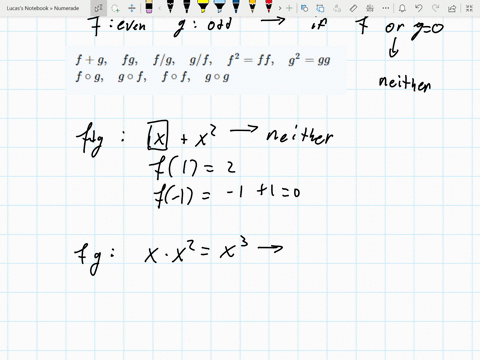 Lucas's Notebook » Numerade
f : even g : odd → if f or g=0
↓
neither
f + g, fg, f/g, g/f, f² = ff, g² = gg
f ∘ g, g ∘ f, f ∘ f, g ∘ g
f+g : x + x² → neither
f(1) = 2
f(-1) = -1 +1=0
fg : x · x² = x³ →